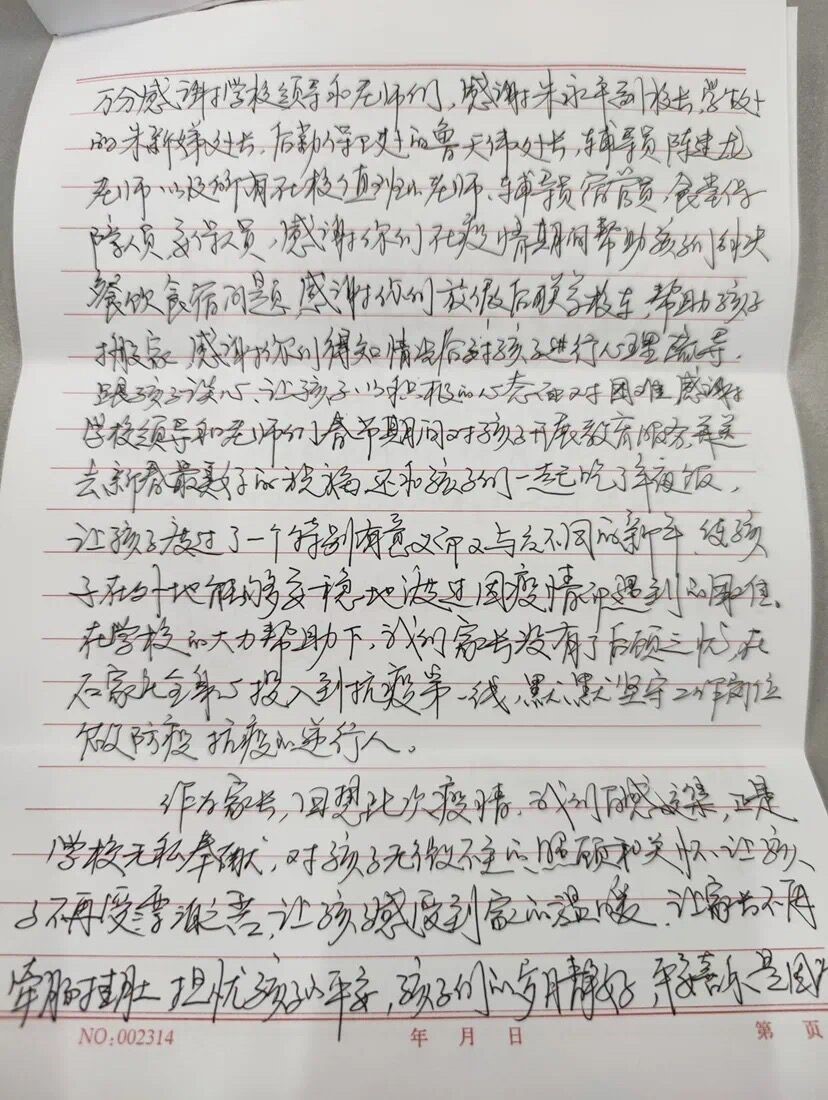 万分感谢学校领导和老师们，感谢朱永平副校长，学校
的朱新娣处长，后勤保卫处的鲁天伟处长，辅导员陈建龙
老师以及所有在校值班的老师、辅导员宿管员，食堂保
障人员，安保人员，感谢你们在疫情期间帮助孩子们解决
餐饮食宿问题，感谢你们放假后联系校车，帮助孩子
搬家，感谢你们得知情况后对孩子进行心理疏导，
跟孩子谈心，让孩子以积极的心态面对困难，感谢
学校领导和老师们春节期间对孩子开展教育服务，并送
去新春最美好的祝福，还和孩子们一起吃了年夜饭，
让孩子度过了一个特别有意义而又与众不同的新年，使孩
子在外地能够安稳地渡过因疫情而遇到的困难。
在学校的大力帮助下，我们家长没有了后顾之忧，在
石家庄全身心投入到抗疫第一线，默默坚守工作岗位
做防疫抗疫的逆行人。
作为家长，回想此次疫情，我们百感交集，正是
学校无私奉献，对孩子无微不至的照顾和关怀，让孩
子不再受漂泊之苦，让孩子感受到家的温暖，让家长不再
牵肠挂肚担忧孩子的平安，孩子们的岁月静好，平安喜乐是因为
NO:002314 年 月 日 第 页